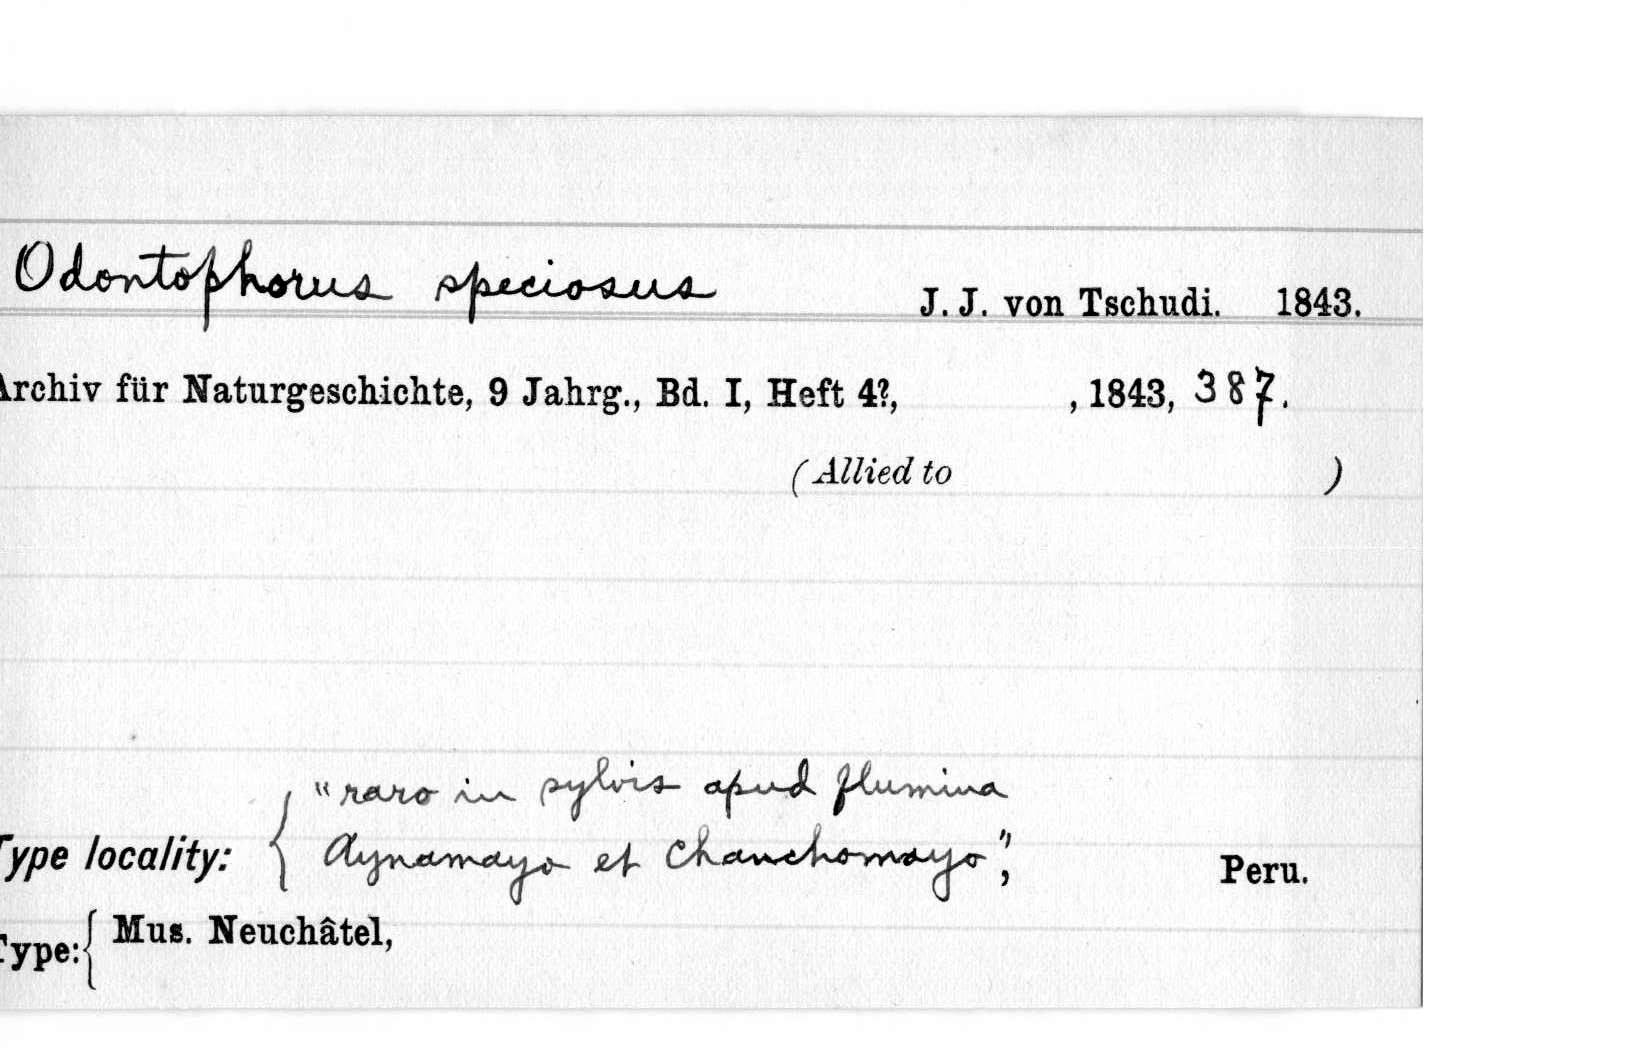 Odontophorus speciosus J. J. von Tschudi. 1843.
Archiv für Naturgeschichte, 9 Jahrg., Bd. I, Heft 4?, , 1843, 387.
(Allied to )
"raro in sylvis apud flumina
Type locality: { Aynamayo et Chanchomayo", Peru.
Type: { Mus. Neuchâtel,